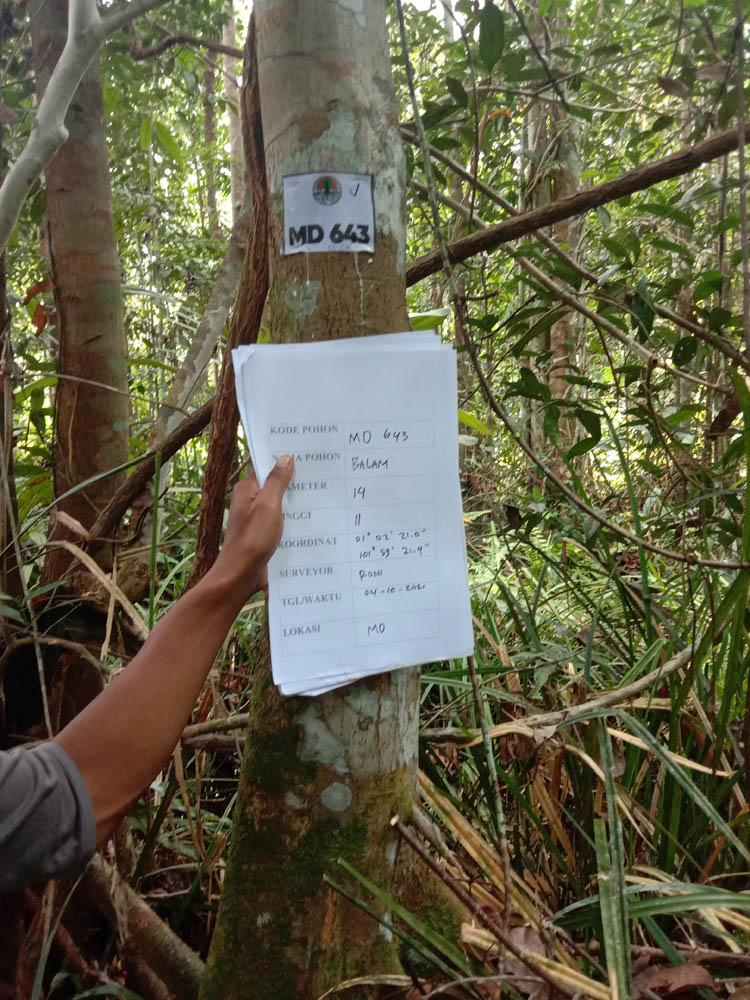 MD 643
KODE POHON MD 643
NAMA POHON BALAM
AMETER 14
INGGI 11
KOORDINAT 01° 02' 21.0"
101° 59' 21.4"
SURVEYOR RONI
TGL/WAKTU 04-10-2021
LOKASI MD